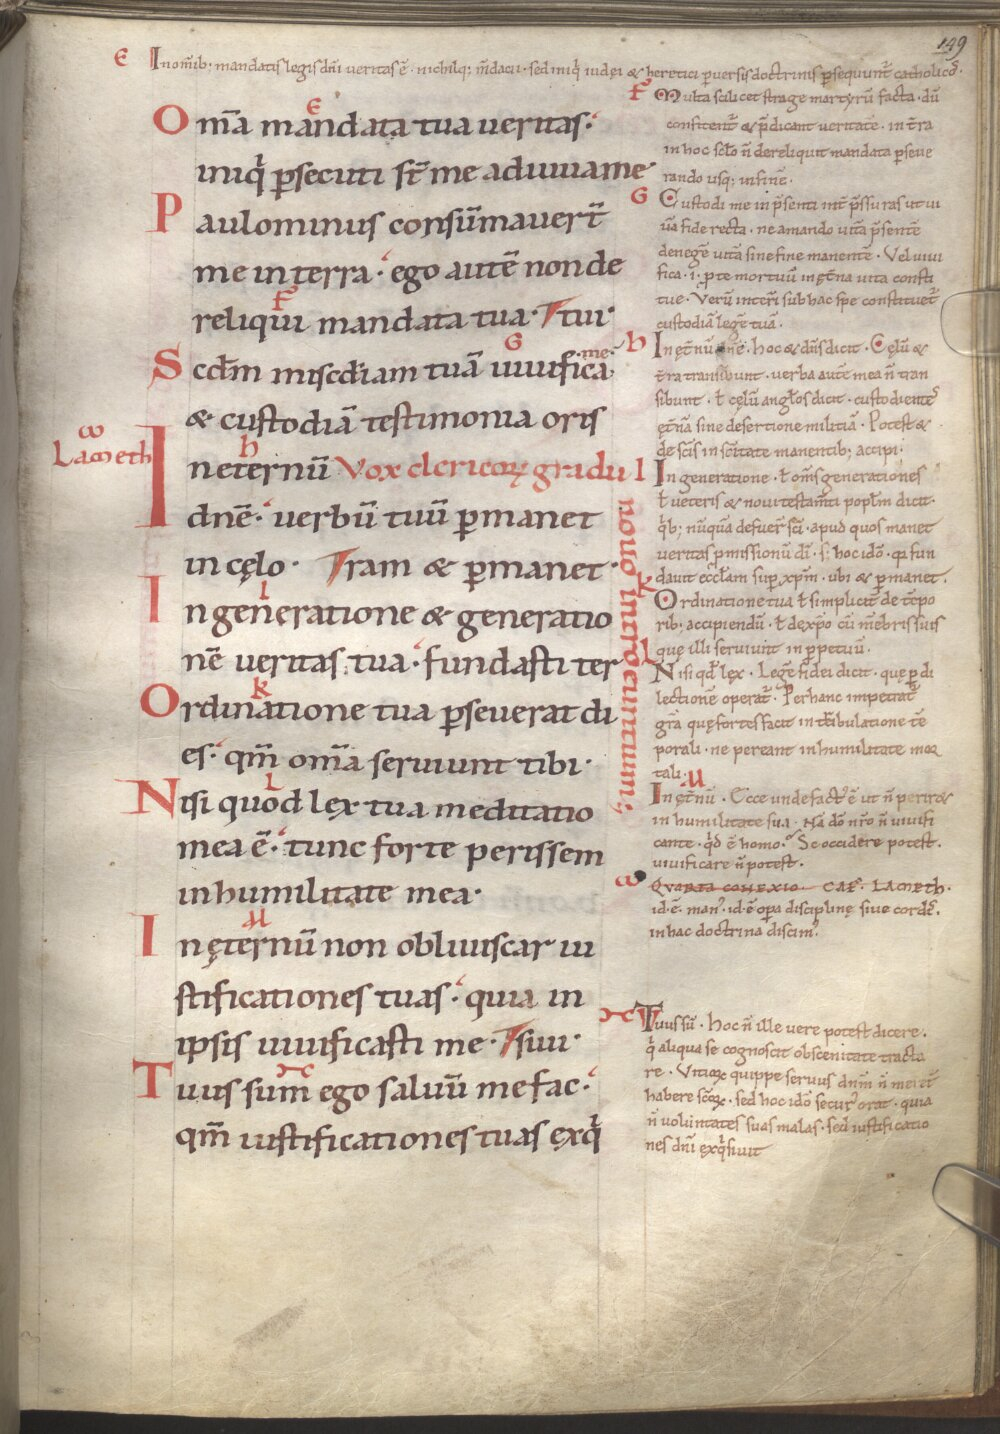 149
E In omib; mandatis legis dñi veritas ē · nichilq; m̄dacii · sed iniq̇ iudei & heretici puersis doctrinis psequunt̄ catholicos.
Om̄a mandata tua ueritas·
iniq̇ psecuti st̄ me adiuuame
Paulominus consūmauer̄t
me in terra · ego autē non de
reliqui mandata tua · tui·
Scd̄m misc̄diam tuā uiuifica me
& custodiā testimonia oris
ω
Lameth
In eternū Vox clericoꝝ gradu
nouo introeuntium;
dnē · uerbū tuū pmanet
in cęlo · ram & pmanet·
In generatione & generatio
nē ueritas tua · fundasti ter
Ordinatione tua pseuerat di
es · qm̄ om̄a seruiunt tibi·
Nisi quod lex tua meditatio
mea ē · tunc forte perissem
in humilitate mea·
In ęternū non obliuiscar iu
stificationes tuas · quia in
ipsis uiuificasti me · siui·
Tuus sum ego saluū me fac·
qm̄ iustificationes tuas exq̇
F Multa scilicet strage martyrū facta · dū
confitent̄ & p̄dicant ueritatē · in t̄ra
in hoc sc̄lo n̄ dereliquit mandata perseue
rando usq; in finē.
G Custodi me in p̄senti int̄ p̄ssuras ut ui
uā fide recta · ne amando uitā p̄sentē
denegē uitā sine fine manentē · Vel uiui
fica · i · p te mortuū in et̄na uita consti
tue · Verū int̄ri sub hac spe constituet̄
custodiā legē tuā.
h In et̄nū dnē · hoc & dūs dicit · Cęlū &
t̄ra transibunt · uerba autē mea n̄ tran
sibunt · ł cęlū anglos dicit · custodientes
ęt̄nā sine desertione militiā · Potest &
de sc̄is in sc̄itate manentib; accipi·
I In generatione · ł om̄s generationes
ł ueteris & noui testam̄ti popl̄m dicit·
q̇b; nūquā defuer̄ sc̄i · apud quos manet
ueritas pmissionū di · s; hoc idō · qa fun
dauit eccl̄am sup xp̄m · ubi & pmanet.
k Ordinatione tua ł simplicit̄ de tēpo
rib; accipiendū · ł de xp̄o cū mēbris suis
quę illi seruiunt in ppetuū.
L Nisi qd̄ lex · Legē fidei dicit · quę p di
lectionē operat̄ · Per hanc impetrat̄
gr̄a quę fortes facit in tribulatione tē
porali · ne pereant in humilitate mor
tali.
M In ęt̄nū · Ecce unde fact̄ ē ut n̄ periret
in humilitate sua · Nā dō nr̄o n̄ uiuifi
cante · q̇d ē homo · Se occidere potest.
uiuificare n̄ potest.
ω QVARTA CONEXIO · CAP̄. LAMETH.
id · ē · man' · id · ē opa disciplinę siue cordis.
in hac doctrina discim'.
Tuus sū · hoc n̄ ille uere potest dicere.
q̇ aliqua se cognoscit obscenitate tracta
re · Vitioꝝ quippe seruus dnm̄ n̄ meret̄
habere sc̄oꝝ · sed hoc idō secur' orat · quia
n̄ uoluntates suas malas · sed iustificatio
nes dn̄i exq̇siuit